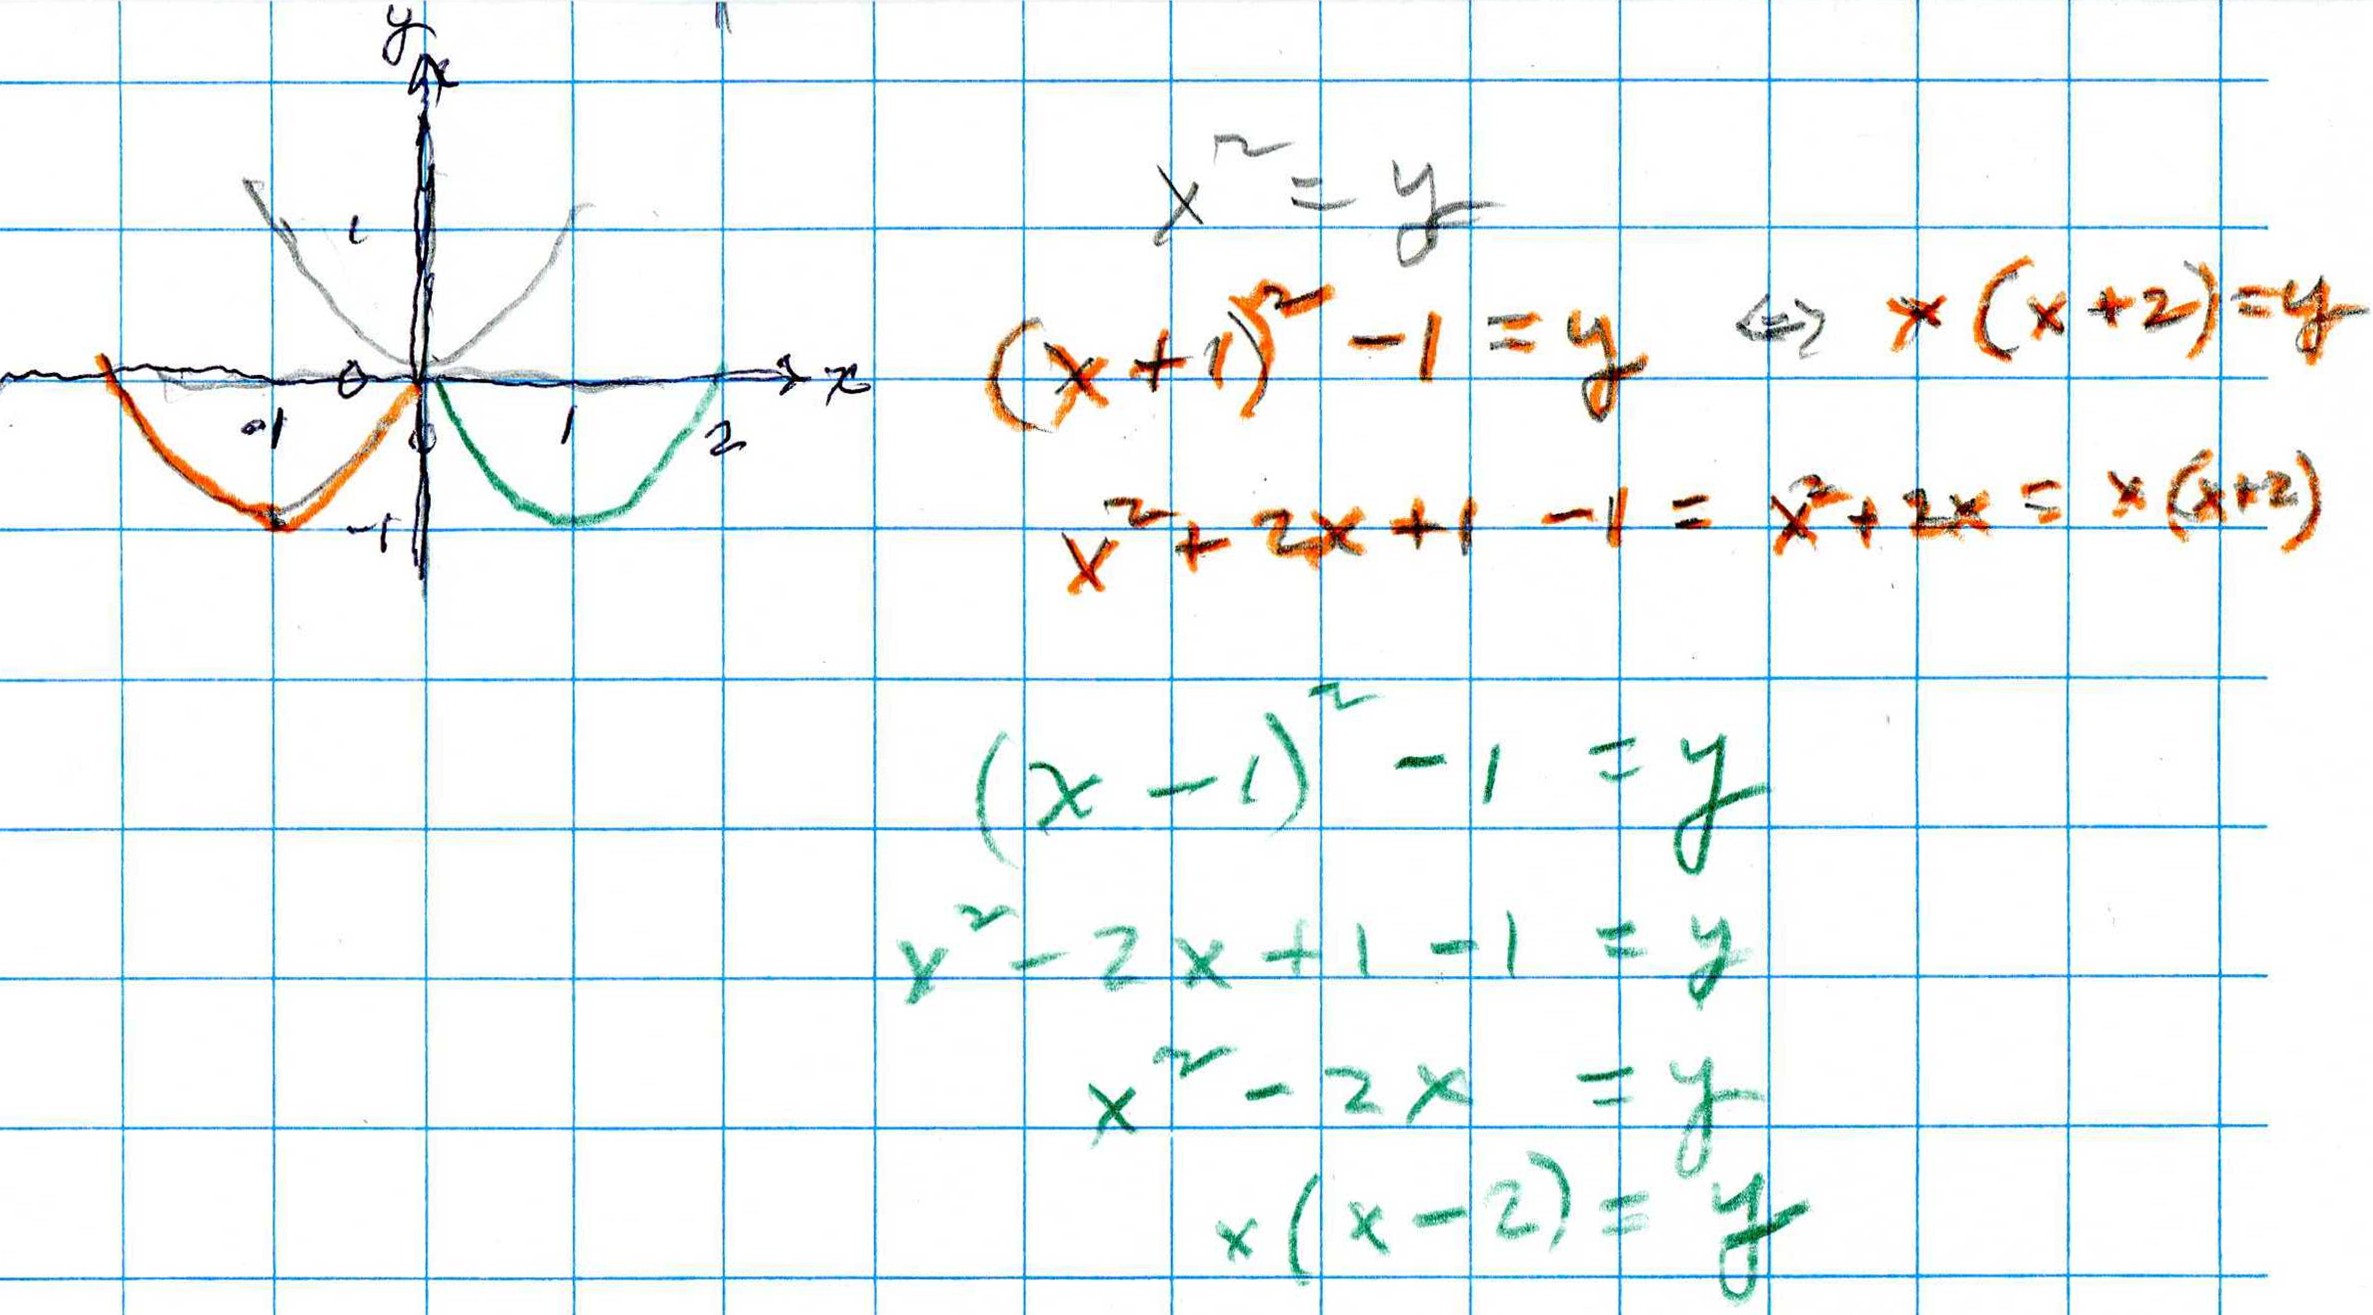 y
x² = y
1
(x+1)² -1 = y ⇔ x(x+2)=y
0 x
-1 0 1 2
-1
x² + 2x +1 -1 = x²+2x = x(x+2)
(x-1)² -1 = y
x² -2x +1 -1 = y
x² -2x = y
x(x-2) = y